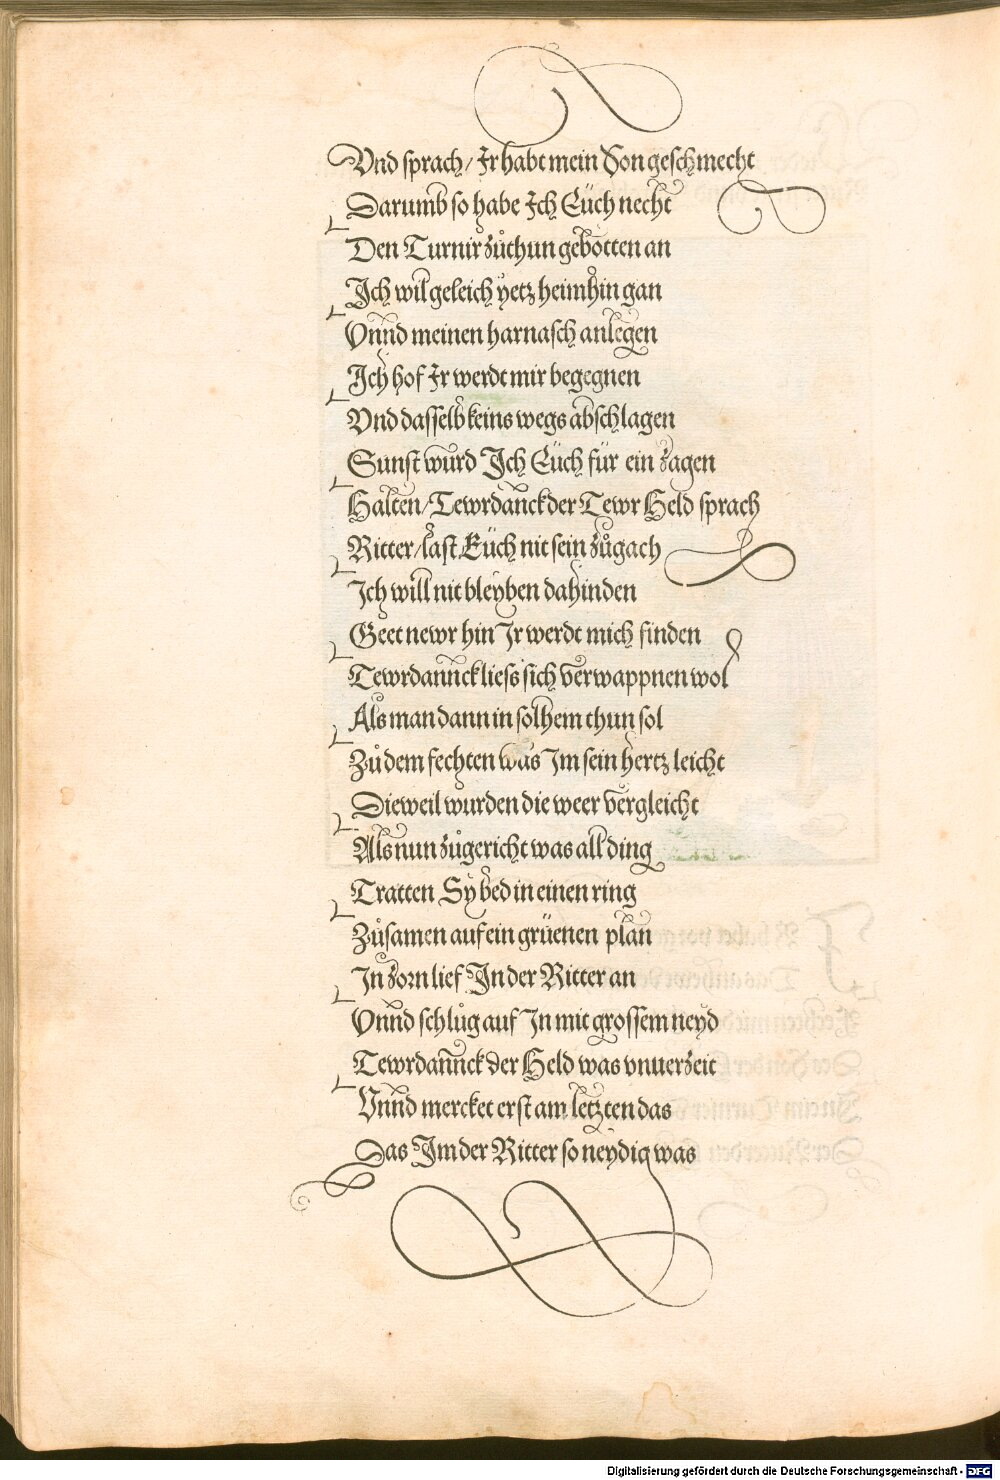 Vnd sprach/ Ir habt mein Son geschmecht
Darumb so habe Ich Eüch necht
Den Turnir zůthun gebotten an
Ich wil geleich yetz heimhin gan
Vnnd meinen harnasch anlegen
Ich hof Ir werdt mir begegnen
Vnd dasselb keins wegs abschlagen
Sunst wurd Ich Eüch für ein zagen
Halten/ Tewrdannck der Tewr Held sprach
Ritter/ last Eüch nit sein zůgach
Ich will nit bleyben dahinden
Geet newr hin Ir werdt mich finden
Tewrdannck liess sich verwappnen wol
Als man dann in solhem thun sol
Zů dem fechten was Im sein hertz leicht
Dieweil wurden die weer vergleicht
Als nun zůgericht was all ding
Tratten Sy bed in einen ring
Zůsamen auf ein grüenen plan
In zorn lief In der Ritter an
Vnnd schlůg auf In mit grossem neyd
Tewrdannck der Held was vnuerzeit
Vnnd mercket erst am letzten das
Das Im der Ritter so neydig was
Digitalisierung gefördert durch die Deutsche Forschungsgemeinschaft - DFG